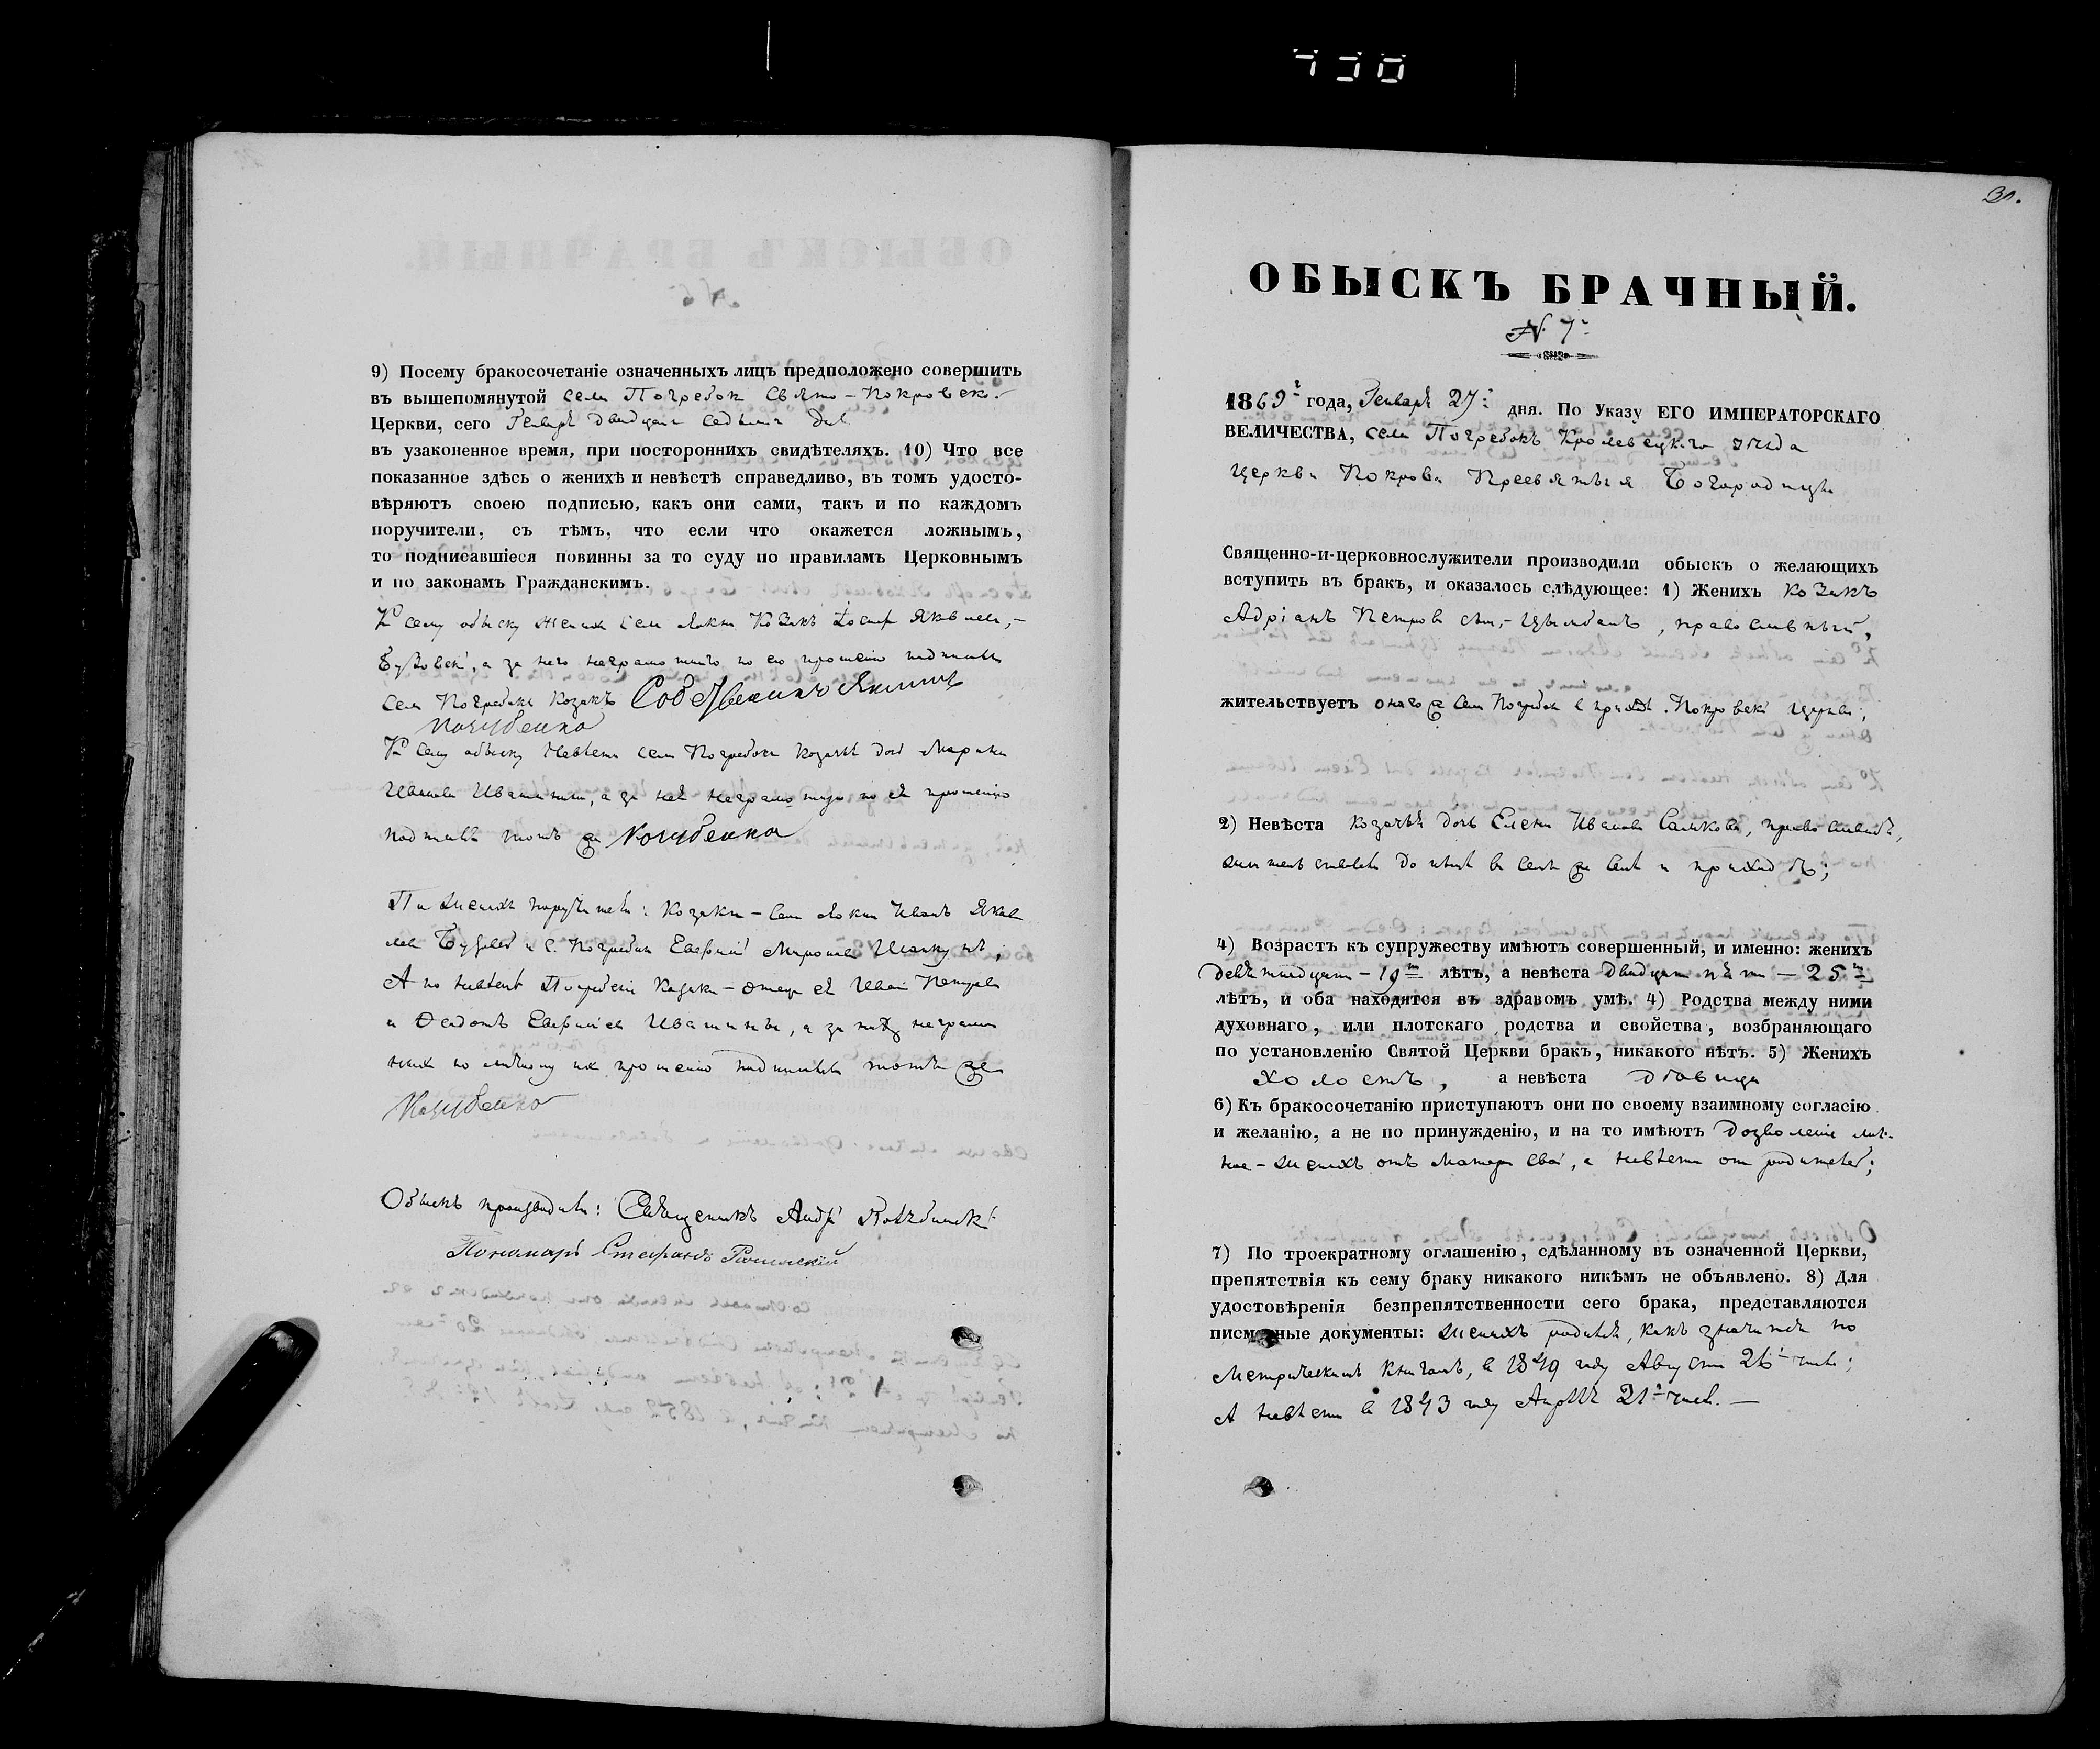 9) Посему бракосочетаніе означенныхъ лицъ предположено совершить
въ вышепомянутой села Погребок Свято-Покровско.
Церкви, сего Генваря двадцать седьмаго дня
въ узаконенное время, при постороннихъ свидѣтеляхъ. 10) Что все
показанное здѣсь о женихѣ и невѣстѣ справедливо, въ томъ удосто-
вѣряютъ своею подписью, какъ они сами, такъ и по каждомъ
поручители, съ тѣмъ, что если что окажется ложнымъ,
то подписавшіеся повинны за то суду по правиламъ Церковнымъ
и по законамъ Гражданскимъ.
К сему обыску жених села Козакъ
а за него неграмотнаго по его прошенію подписал
села Погребокъ Козакъ
Кочубенко
К сему обыску невѣста села Погребокъ козачья дочь Марина
Иванова, а за неё неграмотную по её прошенію
подписалъ тотъ же Кочубенко
По женихѣ поручители: Козаки - села Иванъ Яков
лев и с. Погребок Евфимій
А по невѣстѣ Козаки - отецъ её Иван Петров
и Федотъ Евфиміев, а за них неграмот
ных по личному их прошенію подписался тотъ же
Кочубенко
Обыскъ производили: Священникъ Андрей
Пономарь Стефанъ
31.
ОБЫСКЪ БРАЧНЫЙ.
N. 7
1869 года, Генваря 27: дня. По Указу ЕГО ИМПЕРАТОРСКАГО
ВЕЛИЧЕСТВА, села Погребокъ Кролевецкаго уѣзда
Церкви Покрова Пресвятыя Богородицы
Священно-и-церковнослужители производили обыскъ о желающихъ
вступить въ бракъ, и оказалось слѣдующее: 1) Женихъ Козакъ
Адріанъ Петров сынъ Цымбалъ, православный,
жительствуетъ онаго же села Погребок в приходѣ Покровской церкви;
2) Невѣста козачья дочь Елена Иванова Салькова, православная,
жительствовала до нынѣ в семъ же селѣ и приходѣ;
4) Возрастъ къ супружеству имѣютъ совершенный, и именно: женихъ
девятнадцать - 19 лѣтъ, а невѣста двадцать пять - 25
лѣтъ, и оба находятся въ здравомъ умѣ. 4) Родства между ними
духовнаго, или плотскаго родства и свойства, возбраняющаго
по установленію Святой Церкви бракъ, никакого нѣтъ. 5) Женихъ
холостъ, а невѣста дѣвица
6) Къ бракосочетанію приступаютъ они по своему взаимному согласію
и желанію, а не по принужденію, и на то имѣютъ дозволеніе лич-
ное - женихъ отъ матери своей, а невѣста от родителей;
7) По троекратному оглашенію, сдѣланному въ означенной Церкви,
препятствія къ сему браку никакого никѣмъ не объявлено. 8) Для
удостовѣренія безпрепятственности сего брака, представляются
письменные документы: женихъ родился, какъ значится по
Метрическимъ Книгамъ, в 1849 году Августа 26 числа;
А невѣста в 1843 году Апрѣля 21 числа. -